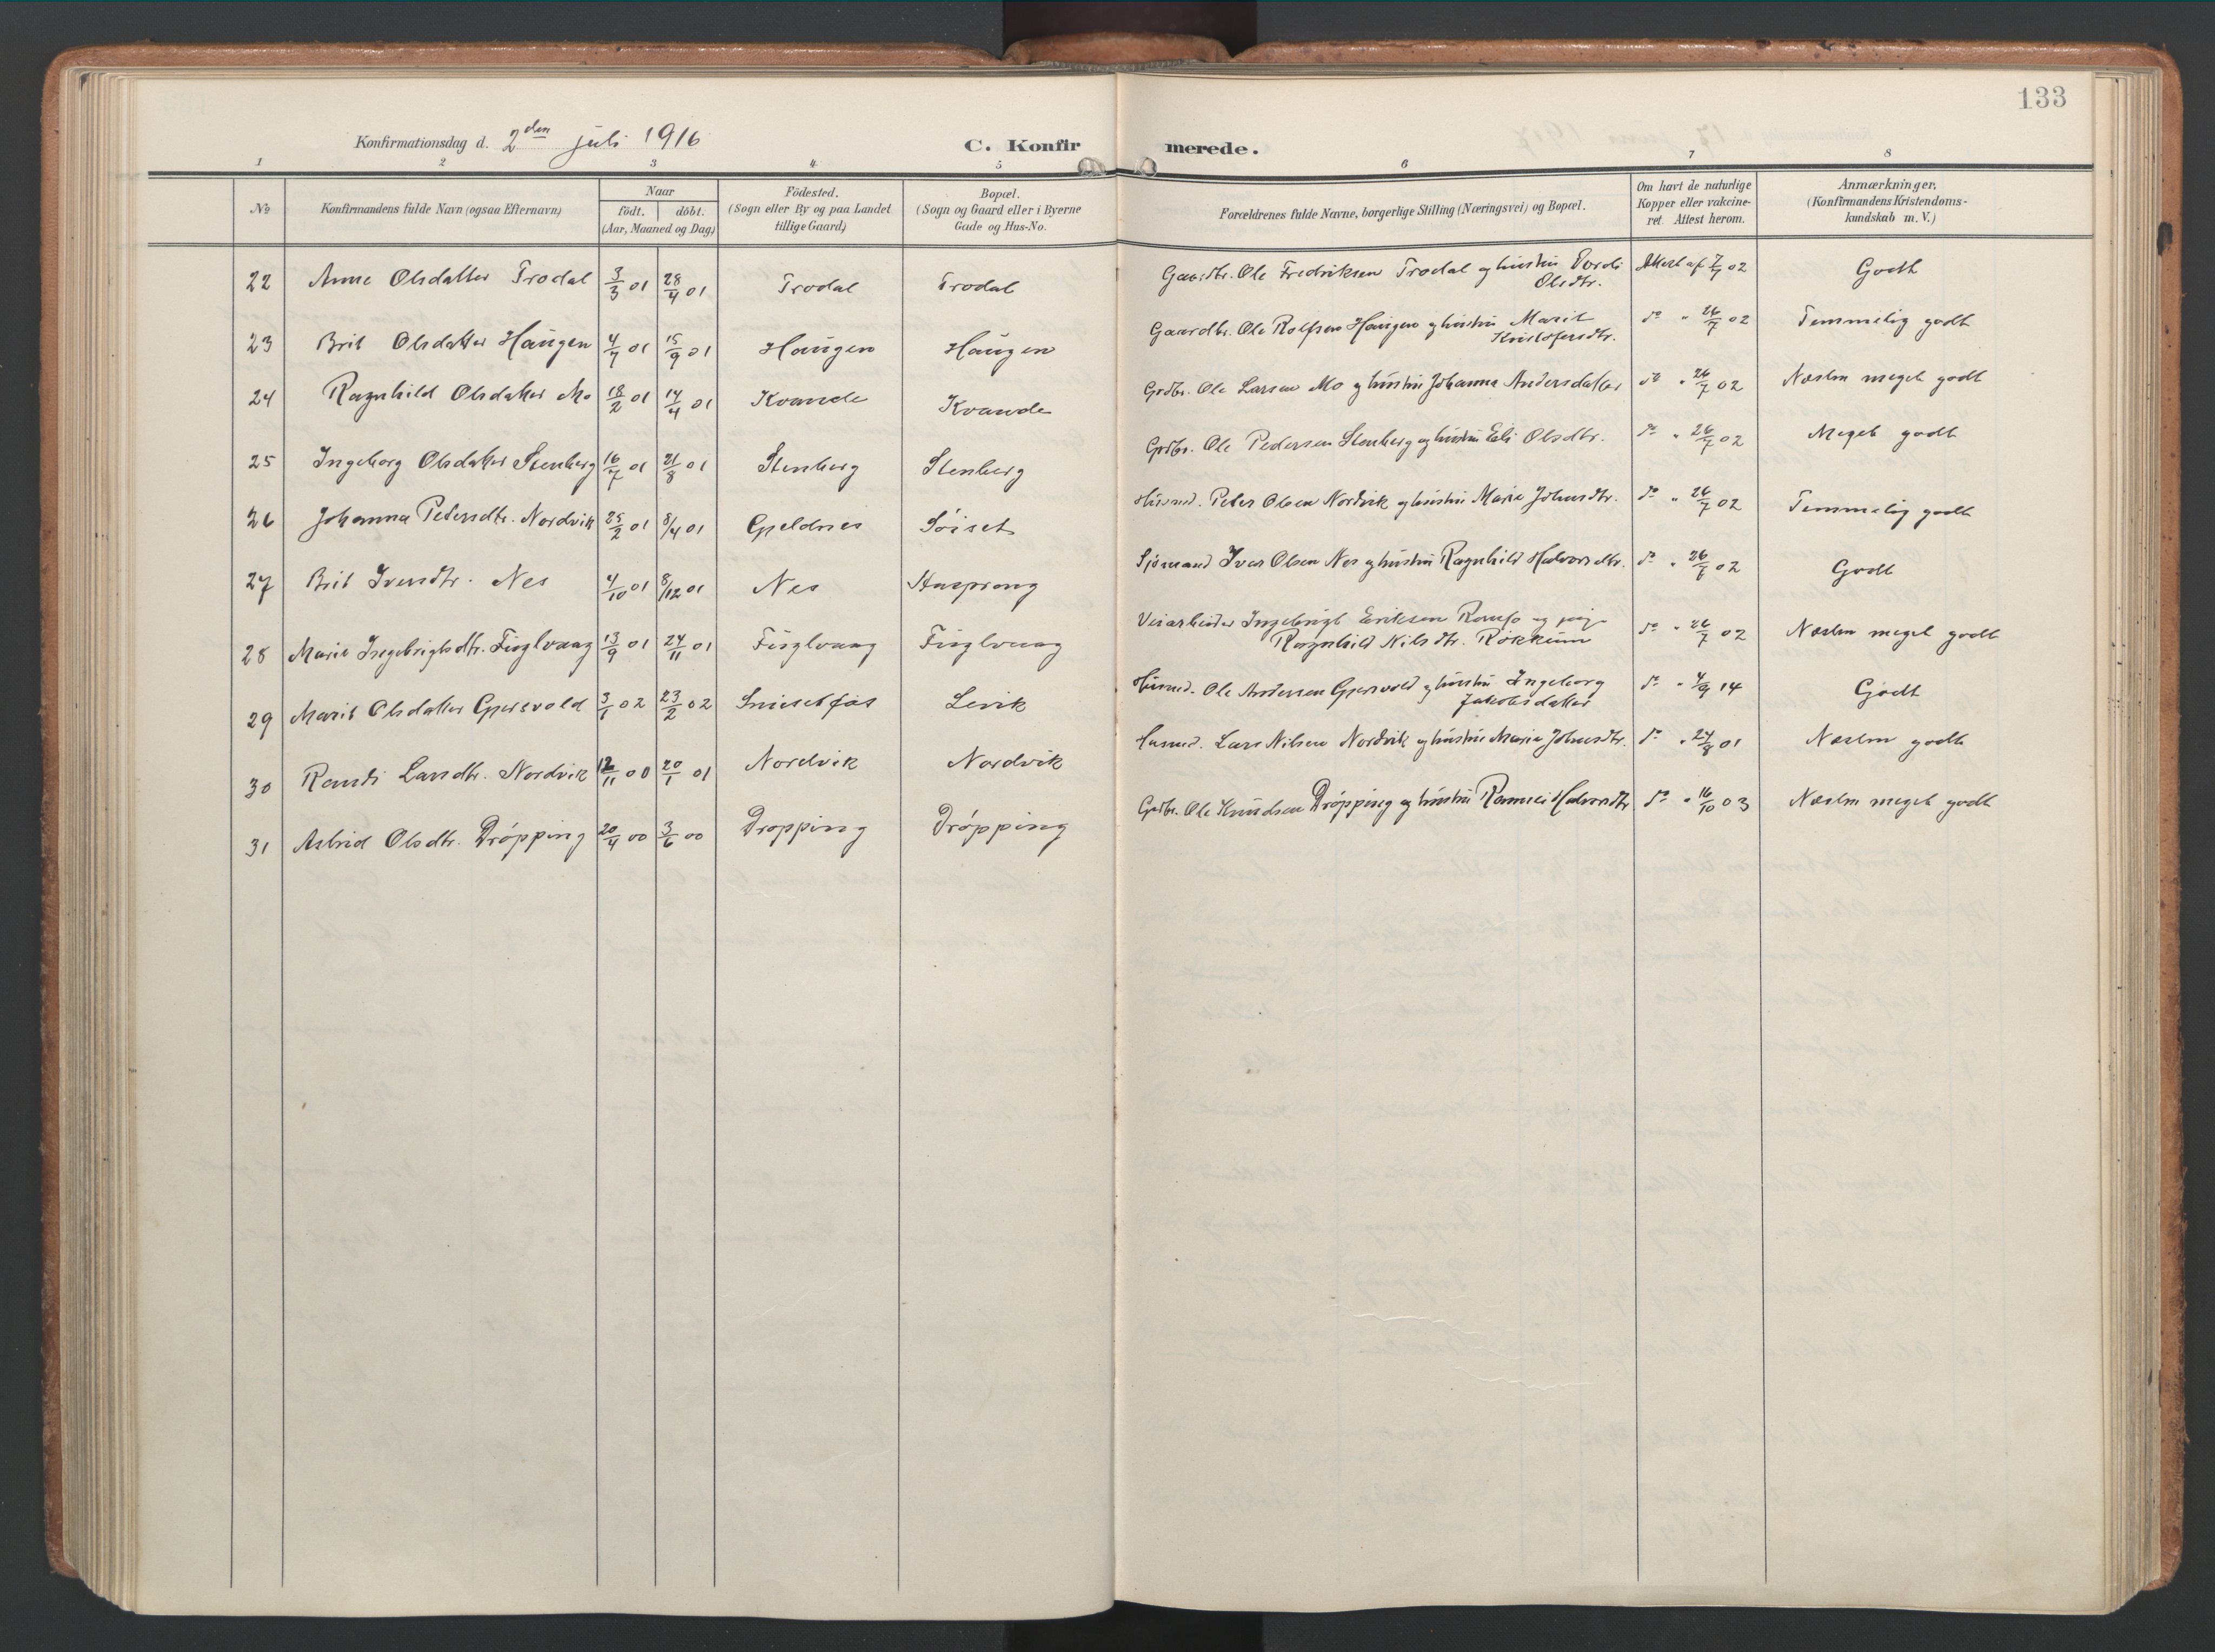 133
Konfirmationsdag d. 2den juli 1916 C. Konfirmerede.
1 2 3 4 5 6 7 8
No Konfirmandens fulde Navn (ogsaa Efternavn) Naar födt. döbt. (Aar, Maaned og Dag) Födested. (Sogn eller By og paa Landet tillige Gaard) Bopæl. (Sogn og Gaard eller i Byerne Gade og Hus-No. Forældrenes fulde Navne, borgerlige Stilling (Næringsvei) og Bopæl. Om havt de naturlige Kopper eller vakcineret. Attest herom. Anmærkninger. (Konfirmandens Kristendomskundskab m. V.)
22 Anne Olsdatter Trodal 3/3 01 28/4 01 Trodal Trodal Gaardbr. Ole Fredriksen Trodal og hustru Olsdtr. Attest af 7/7 02 Godt
23 Brit Olsdatter Haugen 4/7 01 15/9 01 Haugen Haugen Gaardbr. Ole Rolfsen Haugen og hustru Marit Kristofersdtr. do " 26/7 02 Temmelig godt
24 Ragnhild Olsdatter Mo 18/2 01 14/4 01 Kvande Kvande Grdbr. Ole Larsen Mo og hustru Johanna Andersdatter do " 26/7 02 Næsten meget godt
25 Ingeborg Olsdatter Stenberg 16/7 01 21/8 01 Stenberg Stenberg Grdbr. Ole Pedersen Stenberg og hustru Eli Olsdtr. do " 26/7 02 Meget godt
26 Johanna Pedersdtr. Nordvik 25/2 01 8/4 01 Gjeldnes Söiset Husmd. Peter Olsen Nordvik og hustru Marie Johnsdtr. do " 26/7 02 Temmelig godt
27 Brit Iversdtr. Nes 4/10 01 8/12 01 Nes Husprong Sjömand Iver Olsen Nes og hustru Ragnhild Halvorsdtr. do " 26/7 02 Godt
28 Marie Ingebrigtsdtr. Fuglvaag 13/9 01 24/11 01 Fuglvaag Fuglvaag Veiarbeider Ingebrigt Eriksen og pige Ragnhild Nilsdtr. Rökkum do " 26/7 02 Næsten meget godt
29 Marit Olsdatter Gjersvold 3/1 02 23/2 02 Lervik Husmd. Ole Andersen Gjersvold og hustru Ingeborg Jakobsdatter do " 4/9 14 Godt
30 Randi Larsdtr. Nordvik 12/11 00 20/1 01 Nordvik Nordvik Husmd. Lars Nilsen Nordvik og hustru Maria Johnsdtr. do " 24/8 01 Næsten godt
31 Astrid Olsdtr. Dröpping 20/4 00 3/6 00 Dropping Dröpping Grdbr. Ole Knudsen Dröpping og hustru Halvorsdtr do " 16/10 03 Næsten meget godt